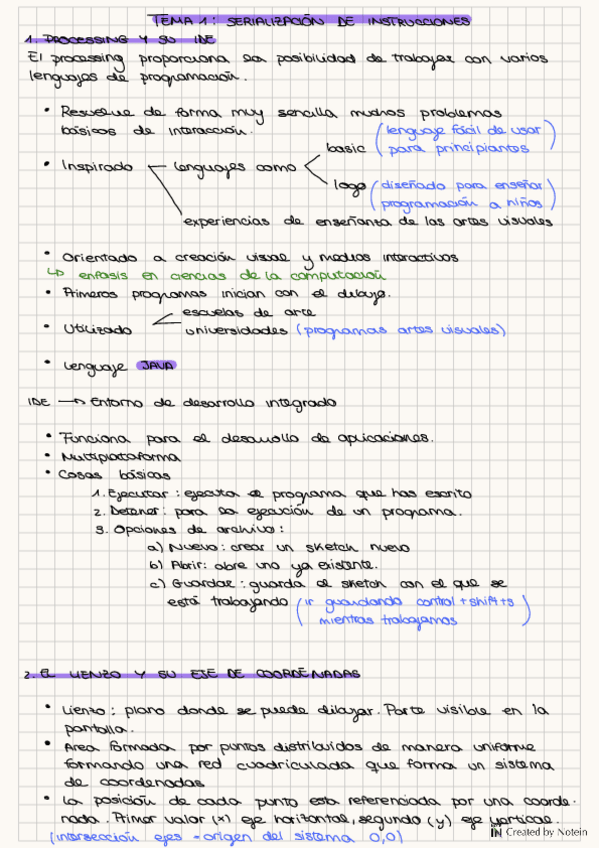 TEMA 1: SERIALIZACIÓN DE INSTRUCCIONES
1. PROCESSING Y SU IDE
El processing proporciona la posibilidad de trabajar con varios
lenguajes de programación.
• Resuelve de forma muy sencilla muchos problemas
básicos de interacción.
basic (lenguaje fácil de usar
para principiantes)
• Inspirado lenguajes como
logo (diseñado para enseñar
programación a niños)
experiencias de enseñanza de las artes visuales
• Orientado a creación visual y medios interactivos
↳ enfasis en ciencias de la computación
• Primeros programas inician con el dibujo.
escuelas de arte
• Utilizado universidades (programas artes visuales)
• Lenguaje JAVA
IDE → Entorno de desarrollo integrado
• Funciona para el desarrollo de aplicaciones.
• Multiplataforma
• Cosas básicas
1. Ejecutar: ejecuta el programa que has escrito
2. Detener: para la ejecución de un programa.
3. Opciones de archivo:
a) Nuevo: crear un sketch nuevo
b) Abrir: abre uno ya existente.
c) Guardar: guarda el sketch con el que se
está trabajando (ir guardando control+shift+s
mientras trabajamos)
2. EL LIENZO Y SU EJE DE COORDENADAS
• Lienzo: plano donde se puede dibujar. Parte visible en la
pantalla.
• Area formada por puntos distribuidos de manera uniforme
formando una red cuadriculada que forma un sistema
de coordenadas
• La posición de cada punto esta referenciada por una coorde-
nada. Primor valor (x) eje horizontal, segundo (y) eje vertical.
(intersección ejes = origen del sistema 0,0)
Created by Notein